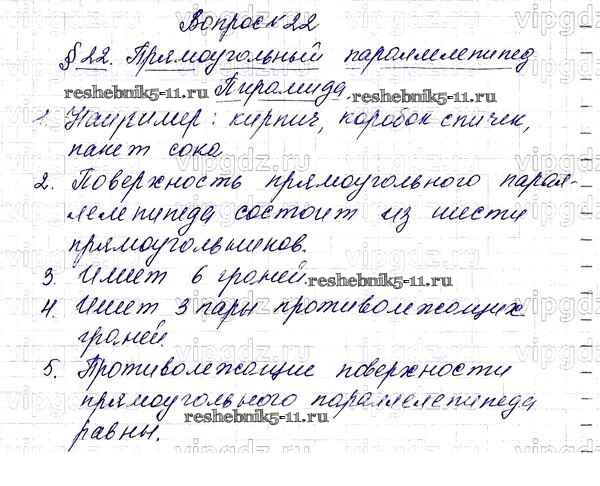 Вопрос к 22
§22. Прямоугольный параллелепипед
Пирамида.
1. Например: кирпич, коробок спичек,
пакет сока
2. Поверхность прямоугольного парал-
лелепипеда состоит из шести
прямоугольников.
3. Имеет 6 граней.
4. Имеет 3 пары противолежащих
граней
5. Противолежащие поверхности
прямоугольного параллелепипеда
равны.
reshebnik5-11.ru.
reshebnik5-11.ru.
reshebnik5-11.ru.
reshebnik5-11.ru.
vipgdz.ru